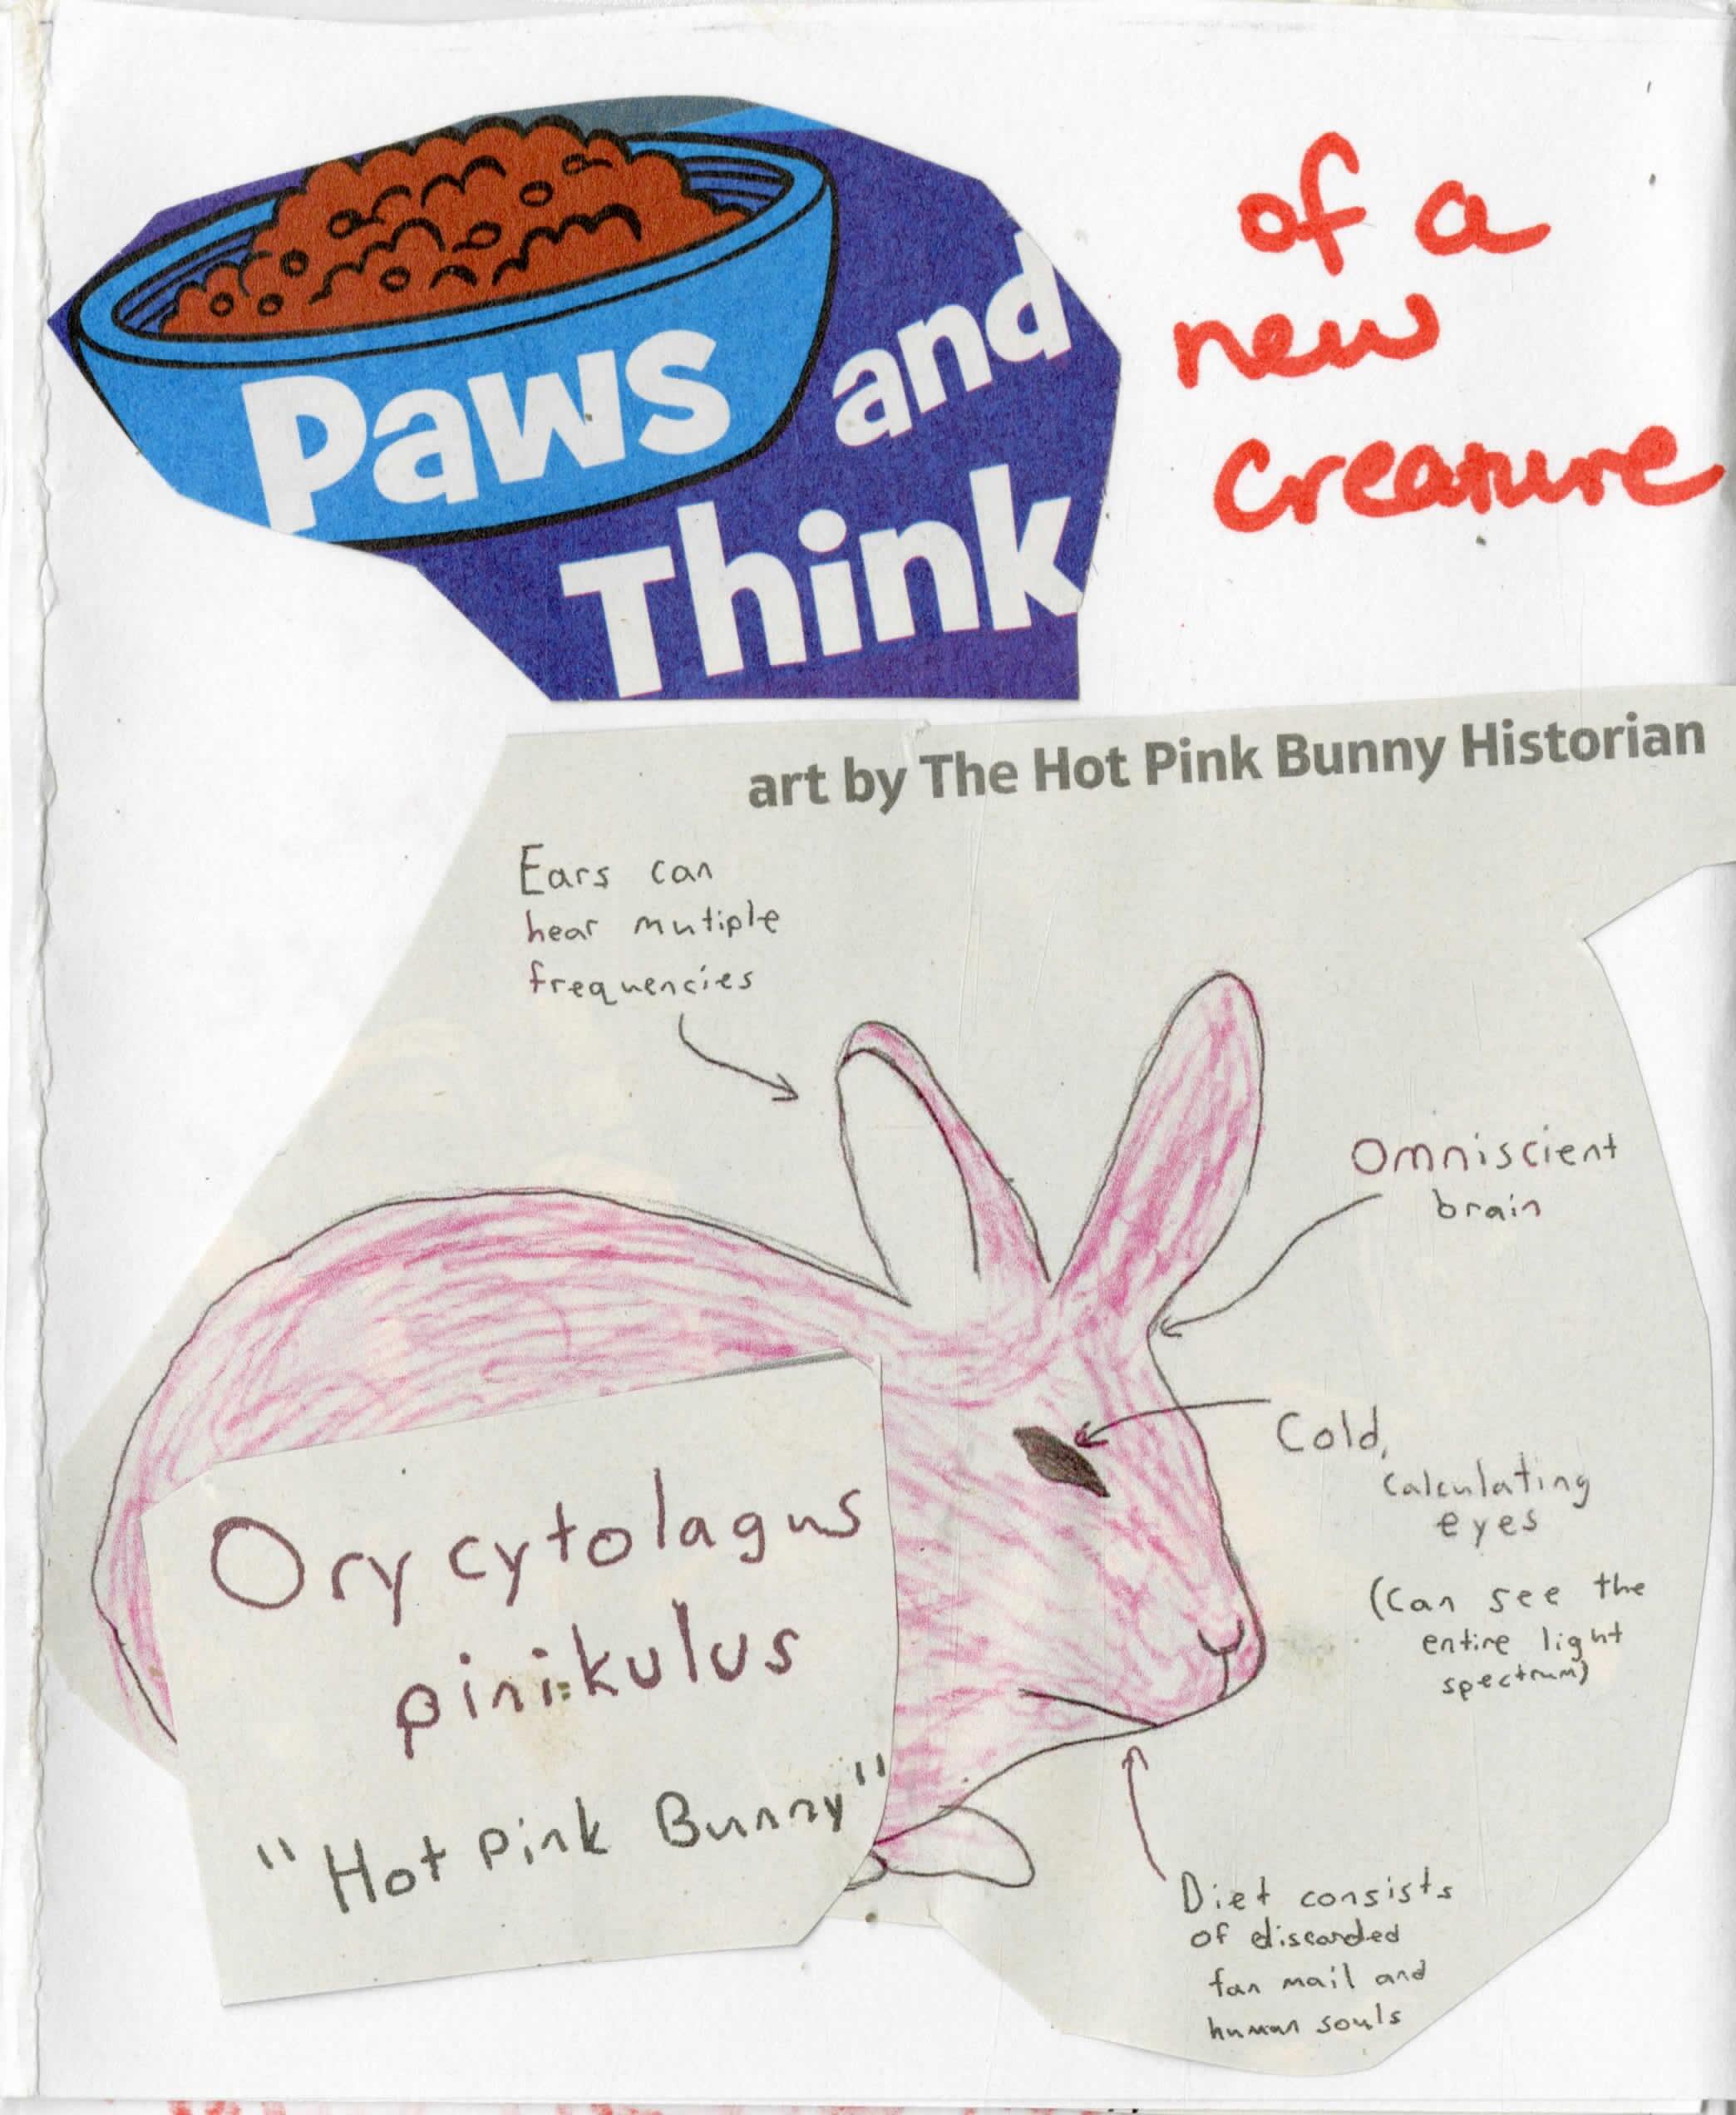 Paws and
Think
of a
new
creature
art by The Hot Pink Bunny Historian
Ears can
hear mutiple
frequencies
Omniscient
brain
Cold,
calculating
eyes
(Can see the
entire light
spectrum)
Orycytolagus
pinikulus
"Hot Pink Bunny"
Diet consists
of discarded
fan mail and
human souls